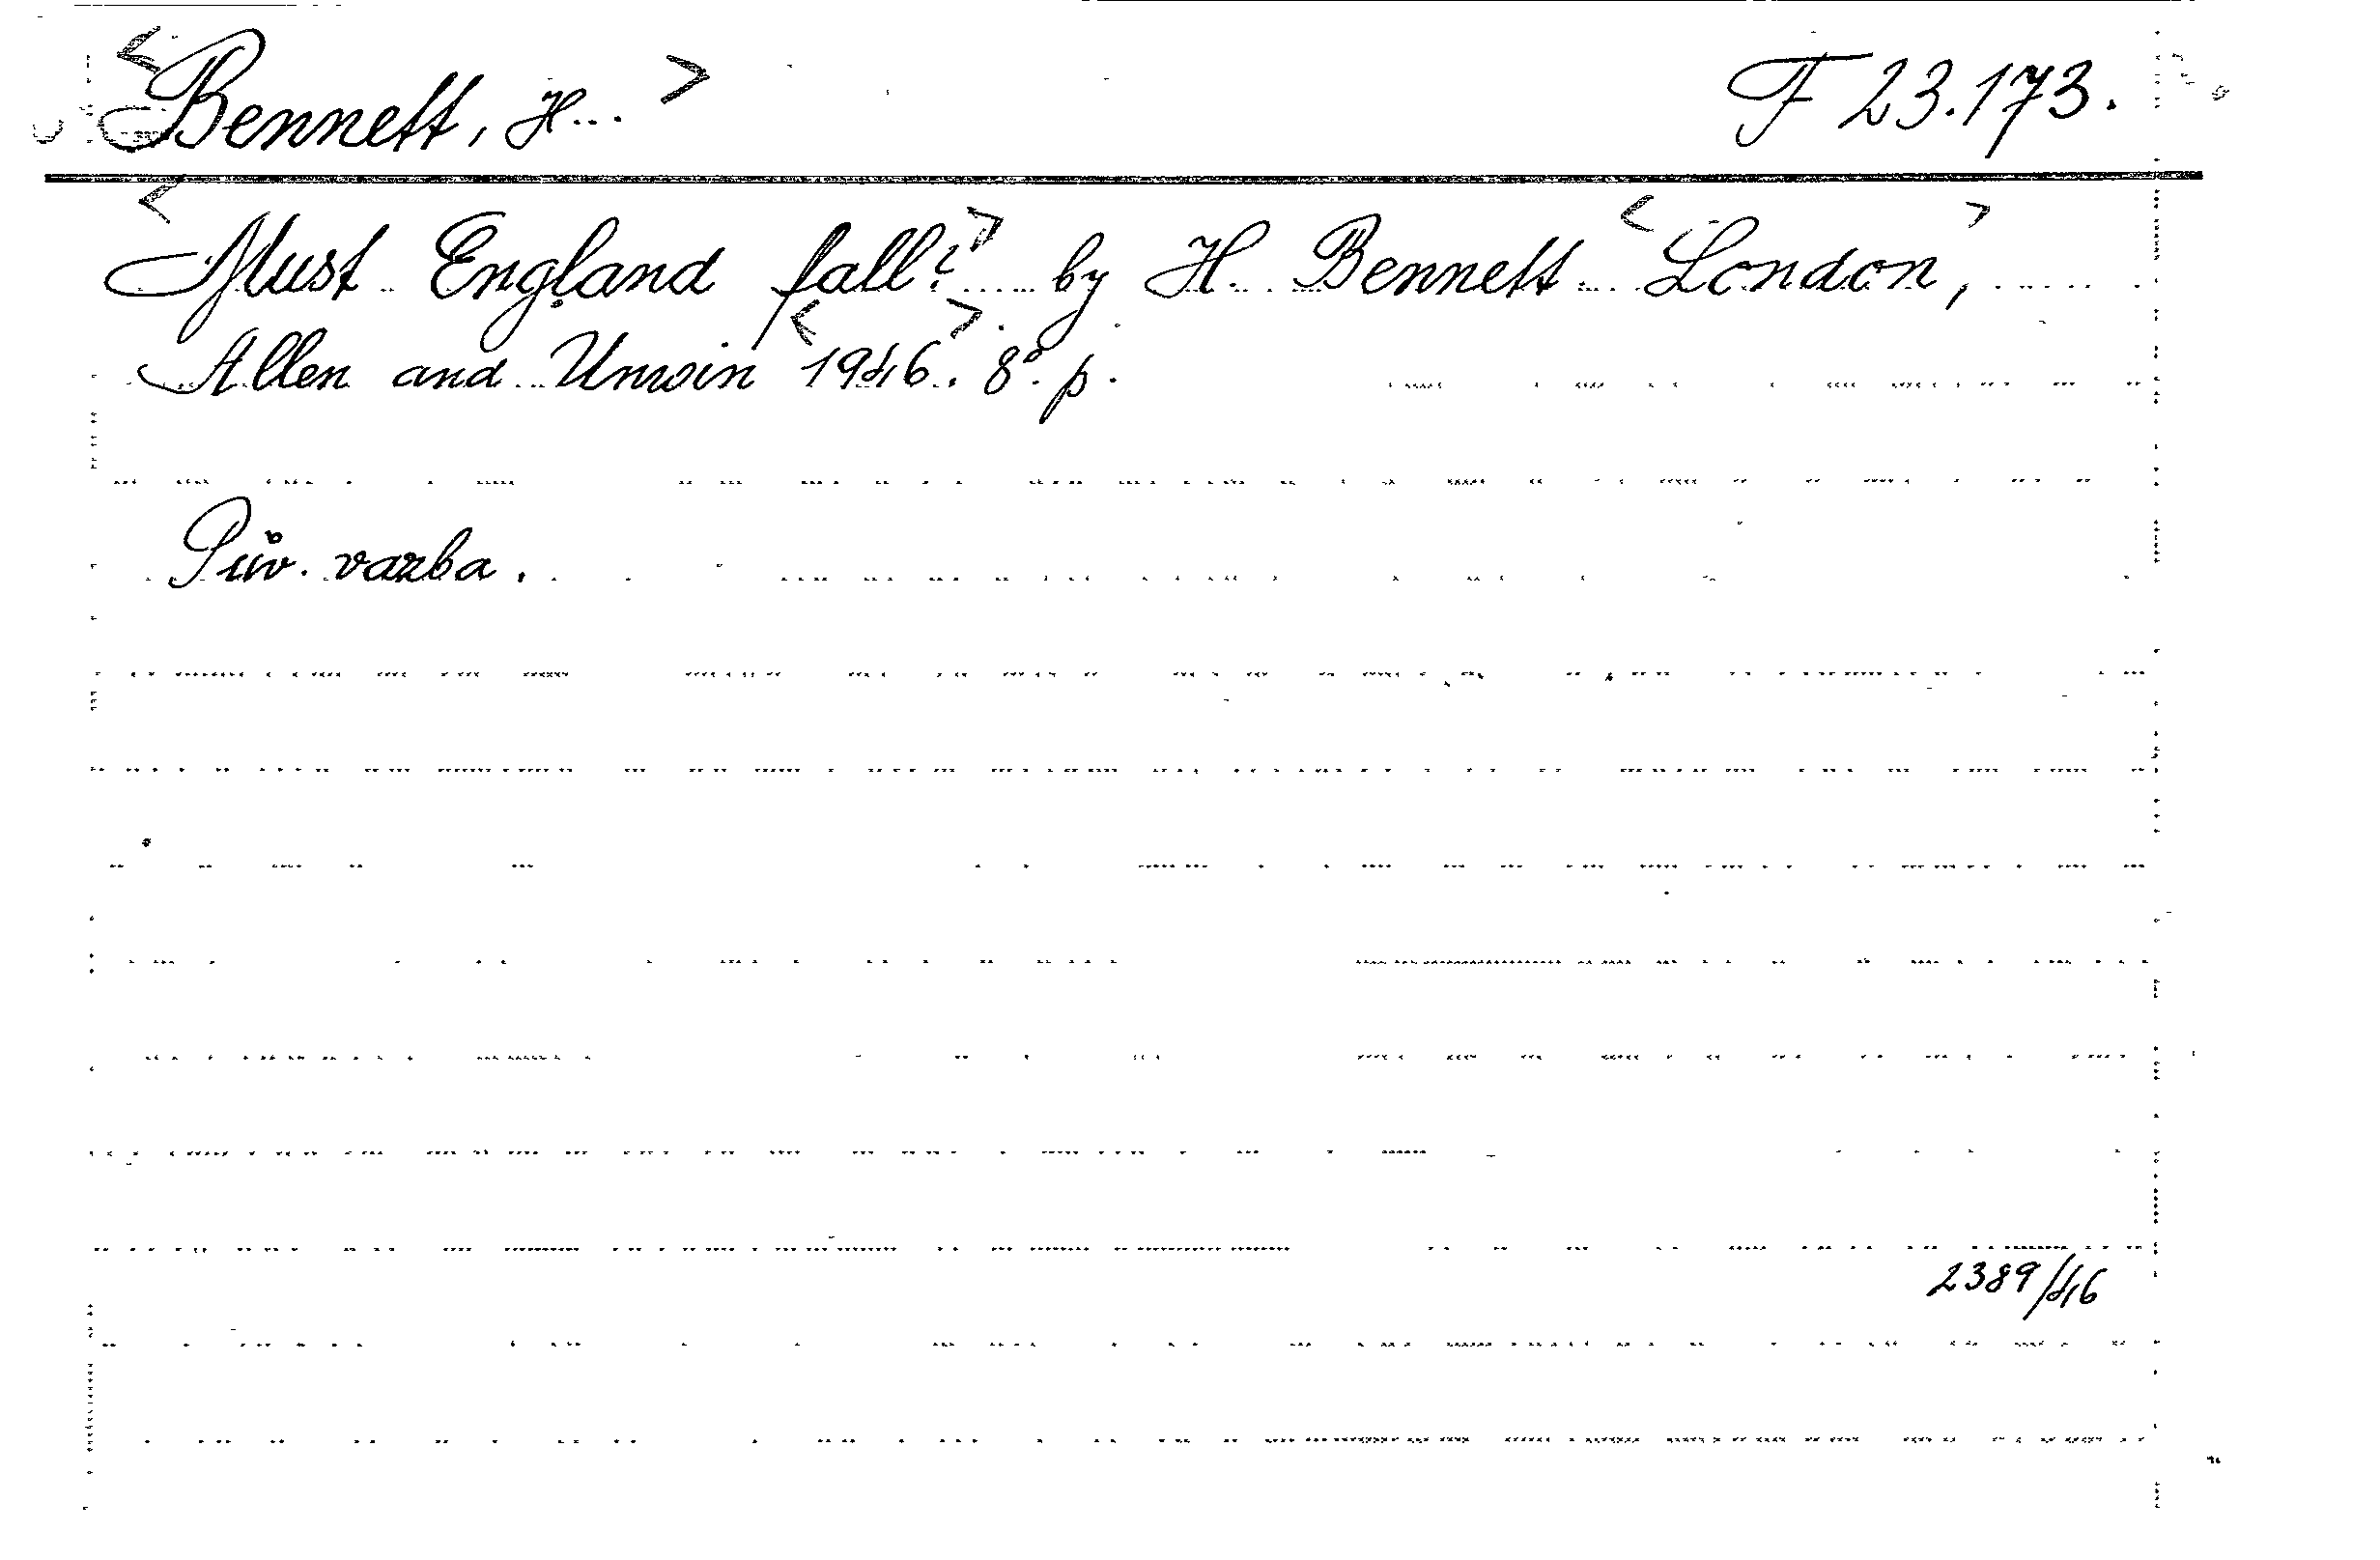 <Bennett, H...> F 23.173.
<Must England fall?> by H. Bennett <London,>
Allen and Unwin <1946>. 8°. p.
Pův. vazba.
2389/46